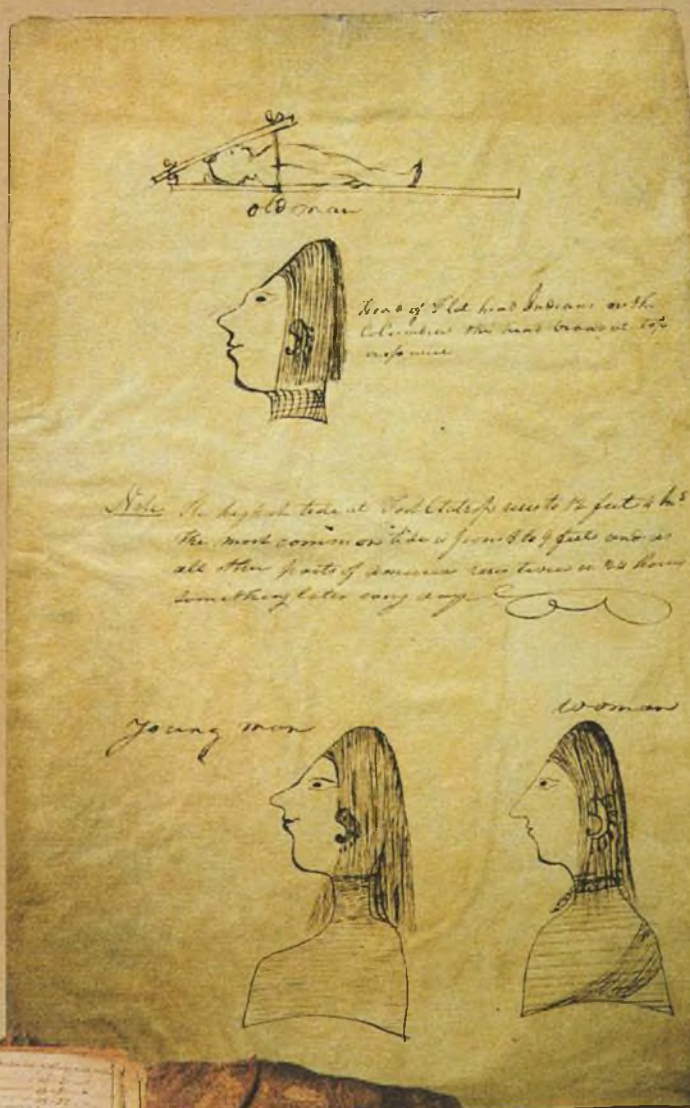 old man
Head of Flat head Indians on the
Columbia the head broad at top
Note The highest tide at Fort Clatsop rises to 12 feet 4 Ins
the most common tide is from 8 to 9 feet and as
all other parts of america runs twice in 24 hours
something later evry day
young man
woman